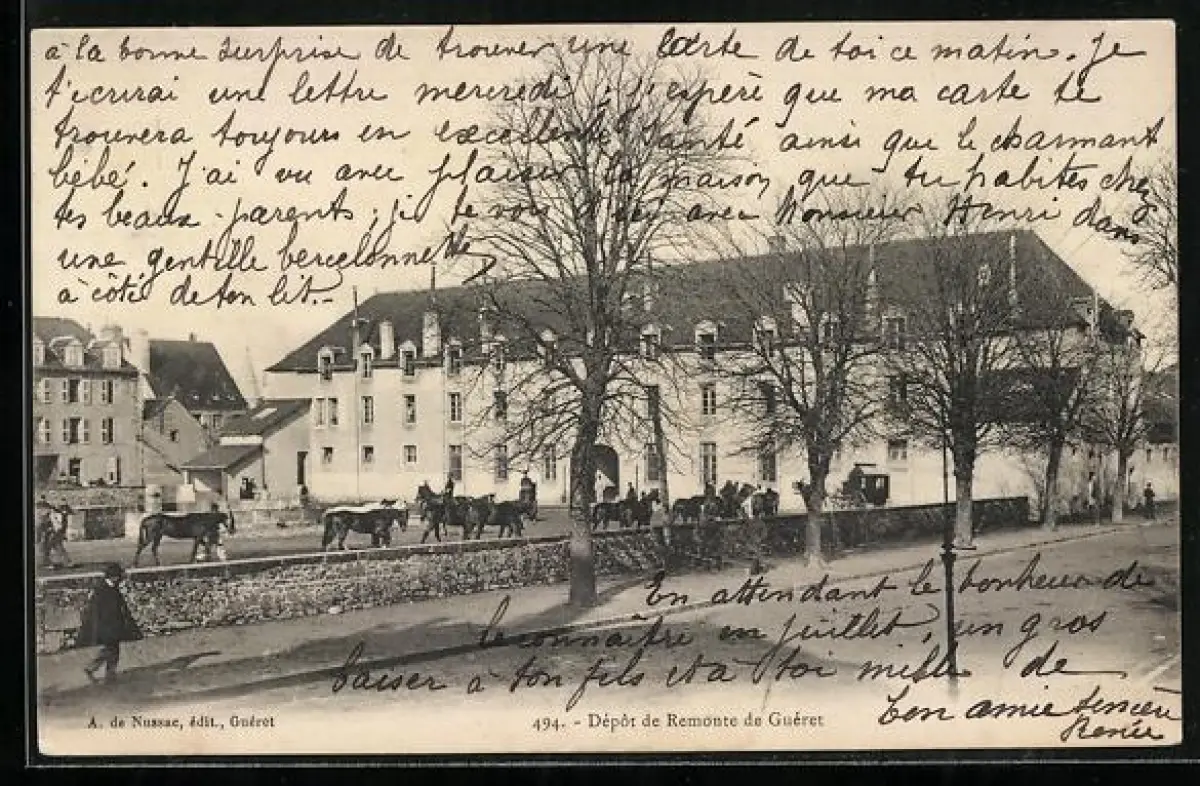 à la bonne surprise de trouver une carte de toi ce matin. Je
t'ecrirai une lettre mercredi ; j'espère que ma carte te
trouvera toujours en excellente santé ainsi que le charmant
bébé. J'ai vu avec plaisir la maison que tu habites chez
tes beaux-parents ; je te vois avec Monsieur Henri dans
une gentille bercelonnette
à côté de ton lit.
En attendant le bonheur de
le connaître en juillet, un gros
baiser à ton fils et à toi mille de
ton amie sincère
Renée
A. de Nussac, édit., Guéret
494. - Dépôt de Remonte de Guéret